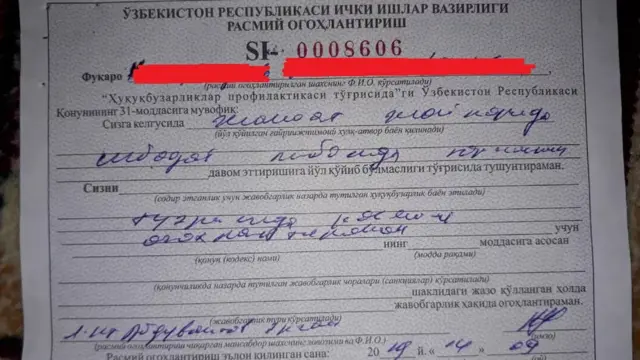 ЎЗБЕКИСТОН РЕСПУБЛИКАСИ ИЧКИ ИШЛАР ВАЗИРЛИГИ
РАСМИЙ ОГОҲЛАНТИРИШ
SI- 0008606
Фуқаро
(расман огоҳлантирилган шахснинг Ф.И.О. кўрсатилади)
“Ҳуқуқбузарликлар профилактикаси тўғрисида”ги Ўзбекистон Республикаси
Қонунининг 31-моддасига мувофиқ:
Сизга келгусида жамоат жойларида
(йўл қўйилган ғайриижтимоий хулқ-атвор баён қилинади)
ибодат либосида
давом эттиришингига йўл қўйиб бўлмаслиги тўғрисида тушунтираман.
Сизни
(содир этганлик учун жавобгарлик назарда тутилган ҳуқуқбузарлик баён этилади)
тўғрисида расмий
огоҳлантираман учун
нинг моддасига асосан
(қонун (кодекс) номи) (модда рақами)
(қонунчиликда назарда тутилган жавобгарлик чоралари (санкциялар) кўрсатилади)
шаклидаги жазо қўлланган ҳолда
жавобгарлик ҳақида огоҳлантираман.
(жавобгарлик тури кўрсатилади)
(расмий огоҳлантириш чиқарган мансабдор шахснинг лавозими ва Ф.И.О.) (имзо)
Расмий огоҳлантириш эълон қилинган сана: 2019 й. « 14 » 09